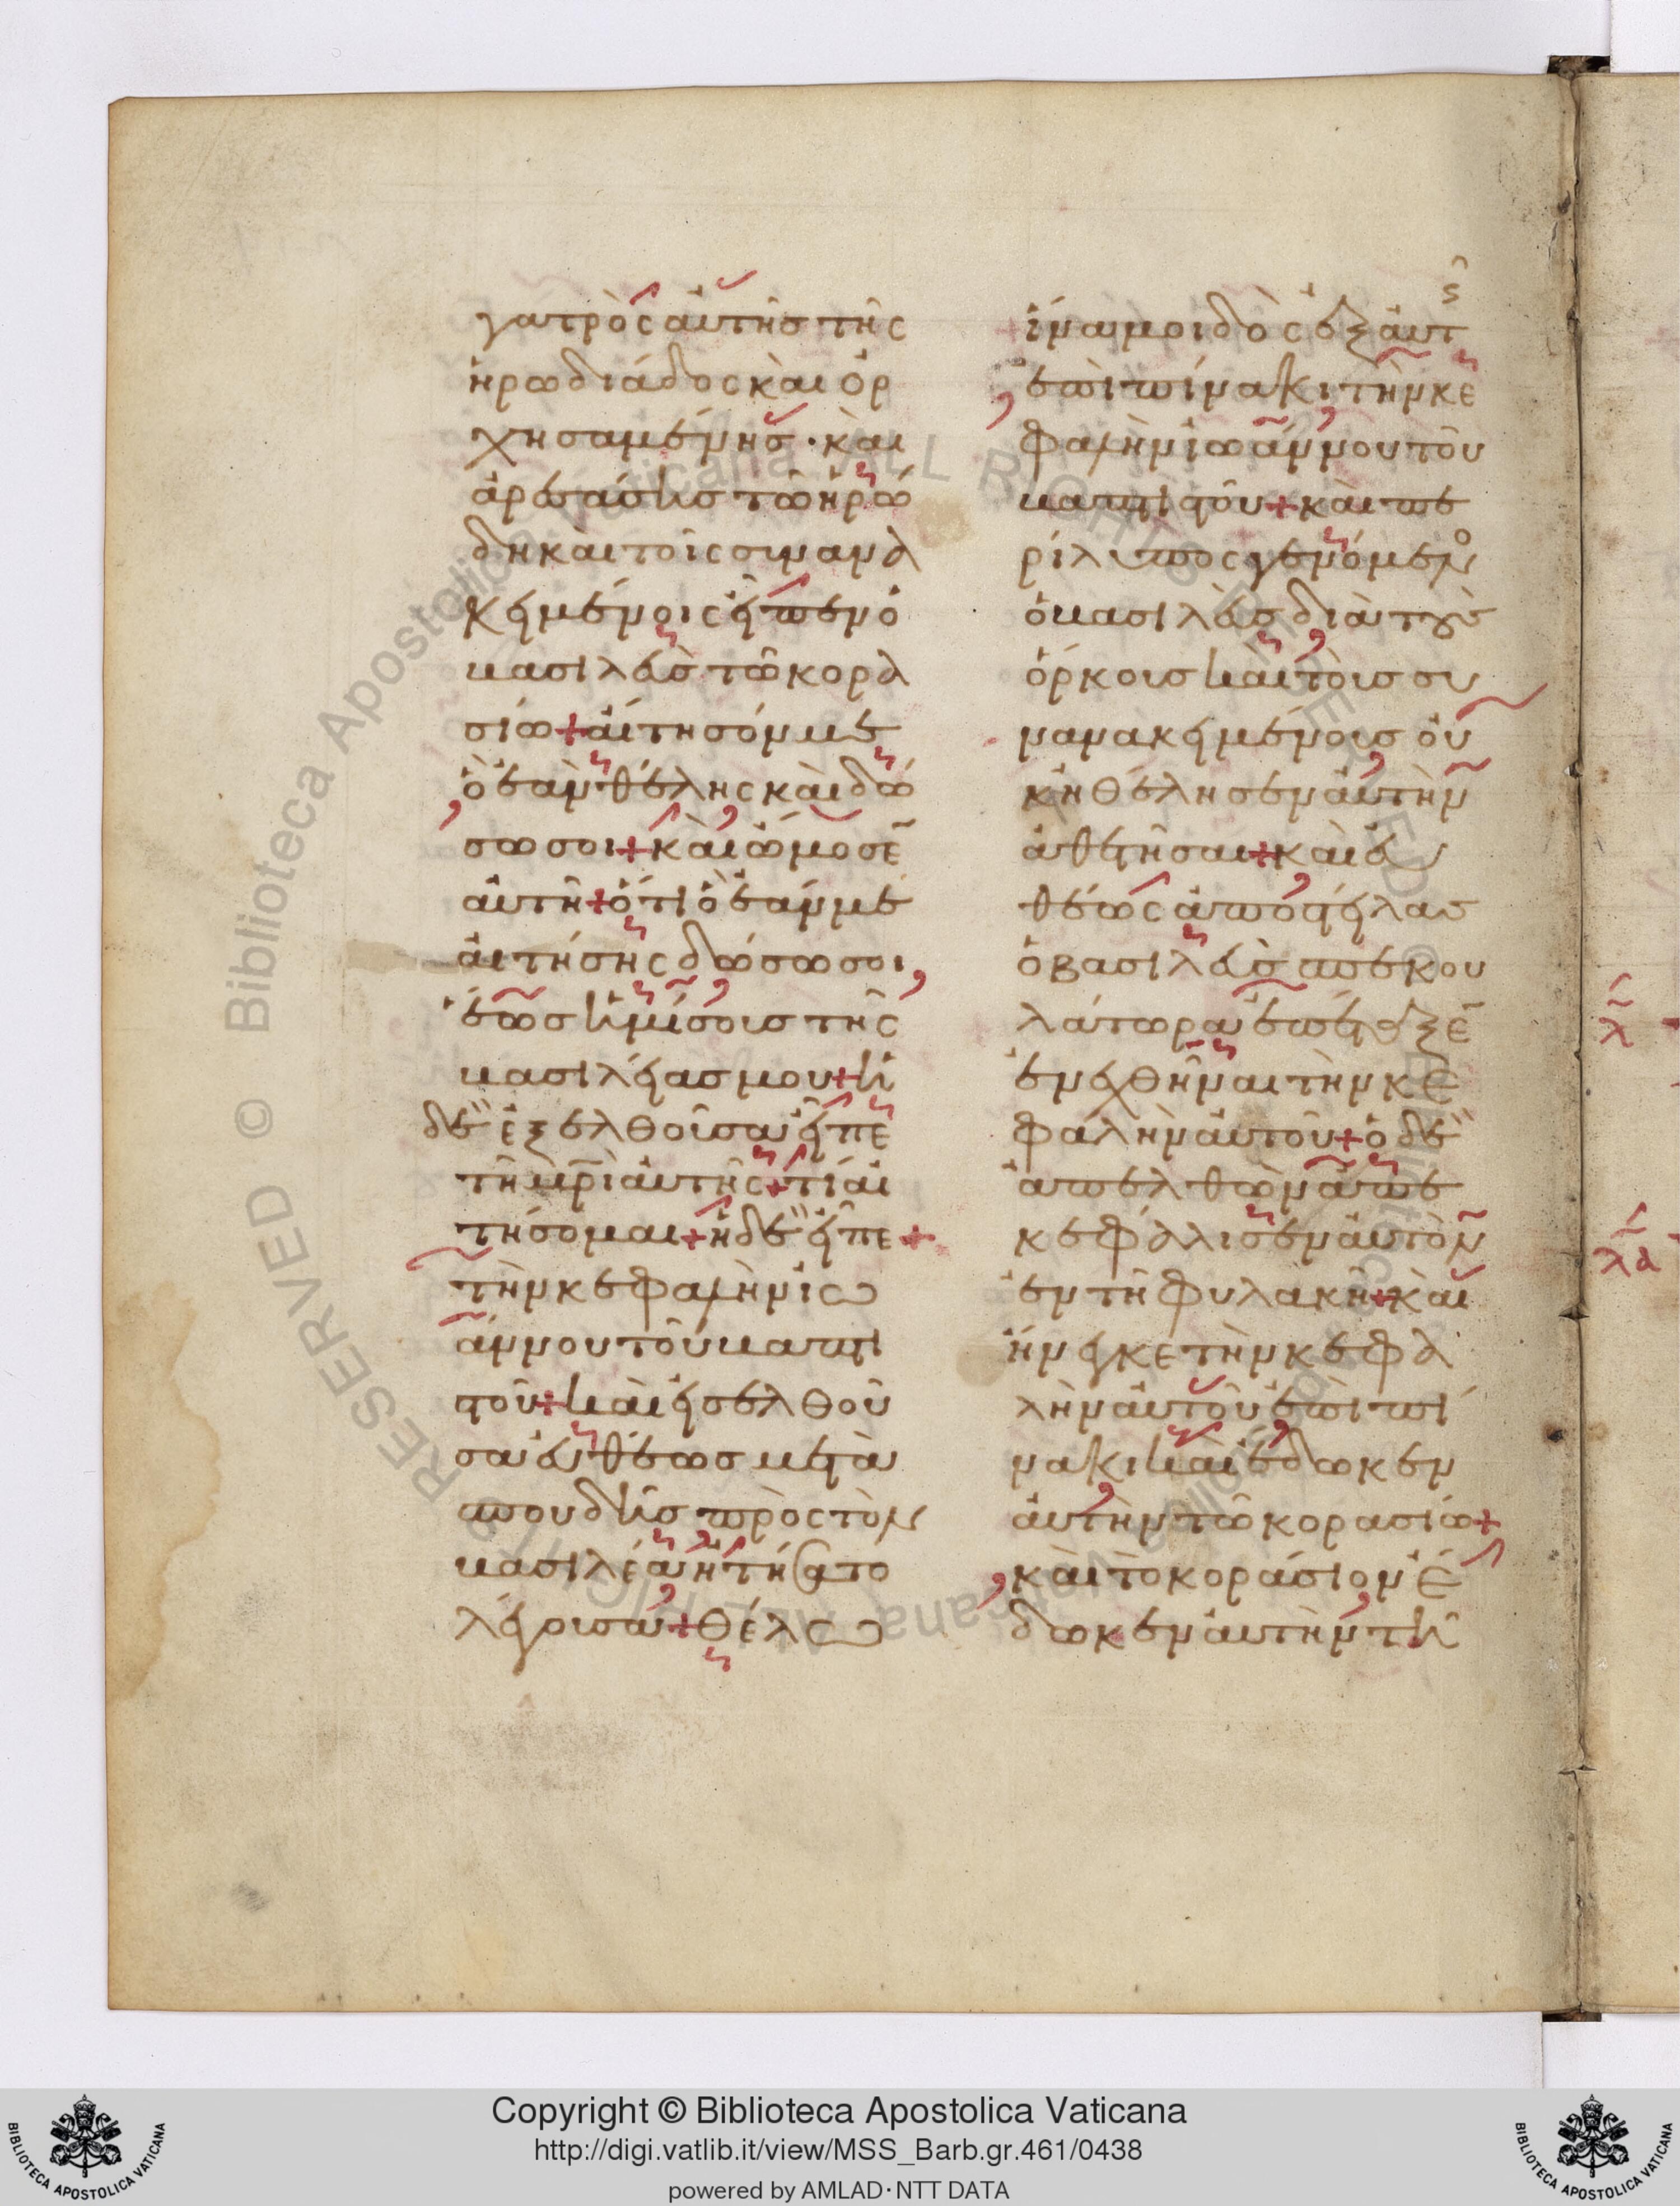 γατρὸς αὐτῆς τῆς
ἡρωδιάδος καὶ ὀρ
χησαμένης · καὶ
ἀρεσάσης τῶ ἡρώ
δη καὶ τοῖς συνανα
κειμένοις εἶπεν ὁ
βασιλεὺς τῶ κορα
σίω + αἴτησόν με
ὃ ἐὰν θέλης καὶ δώ
σω σοι + καὶ ὤμοσε
αὐτῆ + ὅτι ὃ ἐάν με
αἰτήσης δώσω σοι
ἕως ἡμίσους τῆς
βασιλείας μου + ἡ
δὲ ἐξελθοῦσα εἶπε
τῆ μρὶ αὐτῆς + τί αἰ
τήσομαι + ἡ δὲ εἶπε +
τὴν κεφαλὴν ἰω
άννου τοῦ βαπτι
στοῦ + καὶ εἰσελθοῦ
σα εὐθέως μετὰ
σπουδῆς πρὸς τὸν
βασιλέα ἠτήσατο
λέγουσα + θέλω
ἵνα μοι δὸς ἐξ αὐτ
ἐπὶ πίνακι τὴν κε
φαλὴν ἰωάννου τοῦ
βαπτιστοῦ + καὶ πε
ρίλυπος γενόμενο
ὁ βασιλεὺς διὰ τοὺς
ὅρκους καὶ τοὺς συ
νανακειμένους οὐ
κ ἠθέλησεν αὐτὴν
ἀθετῆσαι + καὶ εὐ
θέως ἀποστείλας
ὁ βασιλεὺς σπεκου
λάτωρα ἐπέταξε
ἐνεχθῆναι τὴν κε
φαλὴν αὐτοῦ + ὁ δὲ
ἀπελθὼν ἀπε
κεφάλισεν αὐτὸν
ἐν τῆ φυλακῆ + καὶ
ἤνεγκε τὴν κεφα
λὴν αὐτοῦ ἐπὶ πί
νακι καὶ ἔδωκεν
αὐτὴν τῶ κορασίω +
καὶ τὸ κοράσιον ἔ
δωκεν αὐτὴν τῆ
λ
λα
© Biblioteca Apostolica Vaticana ALL RIGHTS RESERVED
Copyright © Biblioteca Apostolica Vaticana
http://digi.vatlib.it/view/MSS_Barb.gr.461/0438
powered by AMLAD·NTT DATA
BIBLIOTECA APOSTOLICA VATICANA
BIBLIOTECA APOSTOLICA VATICANA